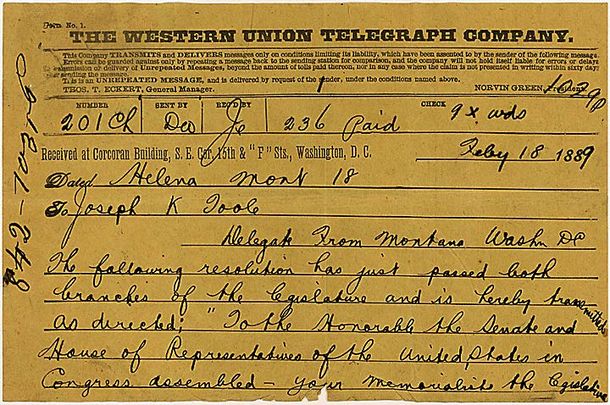 Form No. 1.
THE WESTERN UNION TELEGRAPH COMPANY.
This Company TRANSMITS and DELIVERS messages only on conditions limiting its liability, which have been assented to by the sender of the following message.
Errors can be guarded against only by repeating a message back to the sending station for comparison, and the company will not hold itself liable for errors or delays
in transmission or delivery of Unrepeated Messages, beyond the amount of tolls paid thereon, nor in any case where the claim is not presented in writing within sixty days
after sending the message.
This is an UNREPEATED MESSAGE, and is delivered by request of the sender, under the conditions named above.
THOS. T. ECKERT, General Manager. NORVIN GREEN, President.
NUMBER SENT BY REC'D BY CHECK
201 Ch Do Jc 236 Paid 9x wds
Received at Corcoran Building, S. E. Cor. 15th & "F" Sts., Washington, D. C. Feby 18 1889
Dated Helena Mont 18
To Joseph K Toole
Delegate From Montana Washn DC
The following resolution has just passed both
branches of the legislature and is hereby transmitted
as directed; "To the Honorable the Senate and
House of Representatives of the United States in
Congress assembled - your Memorialists the legislative